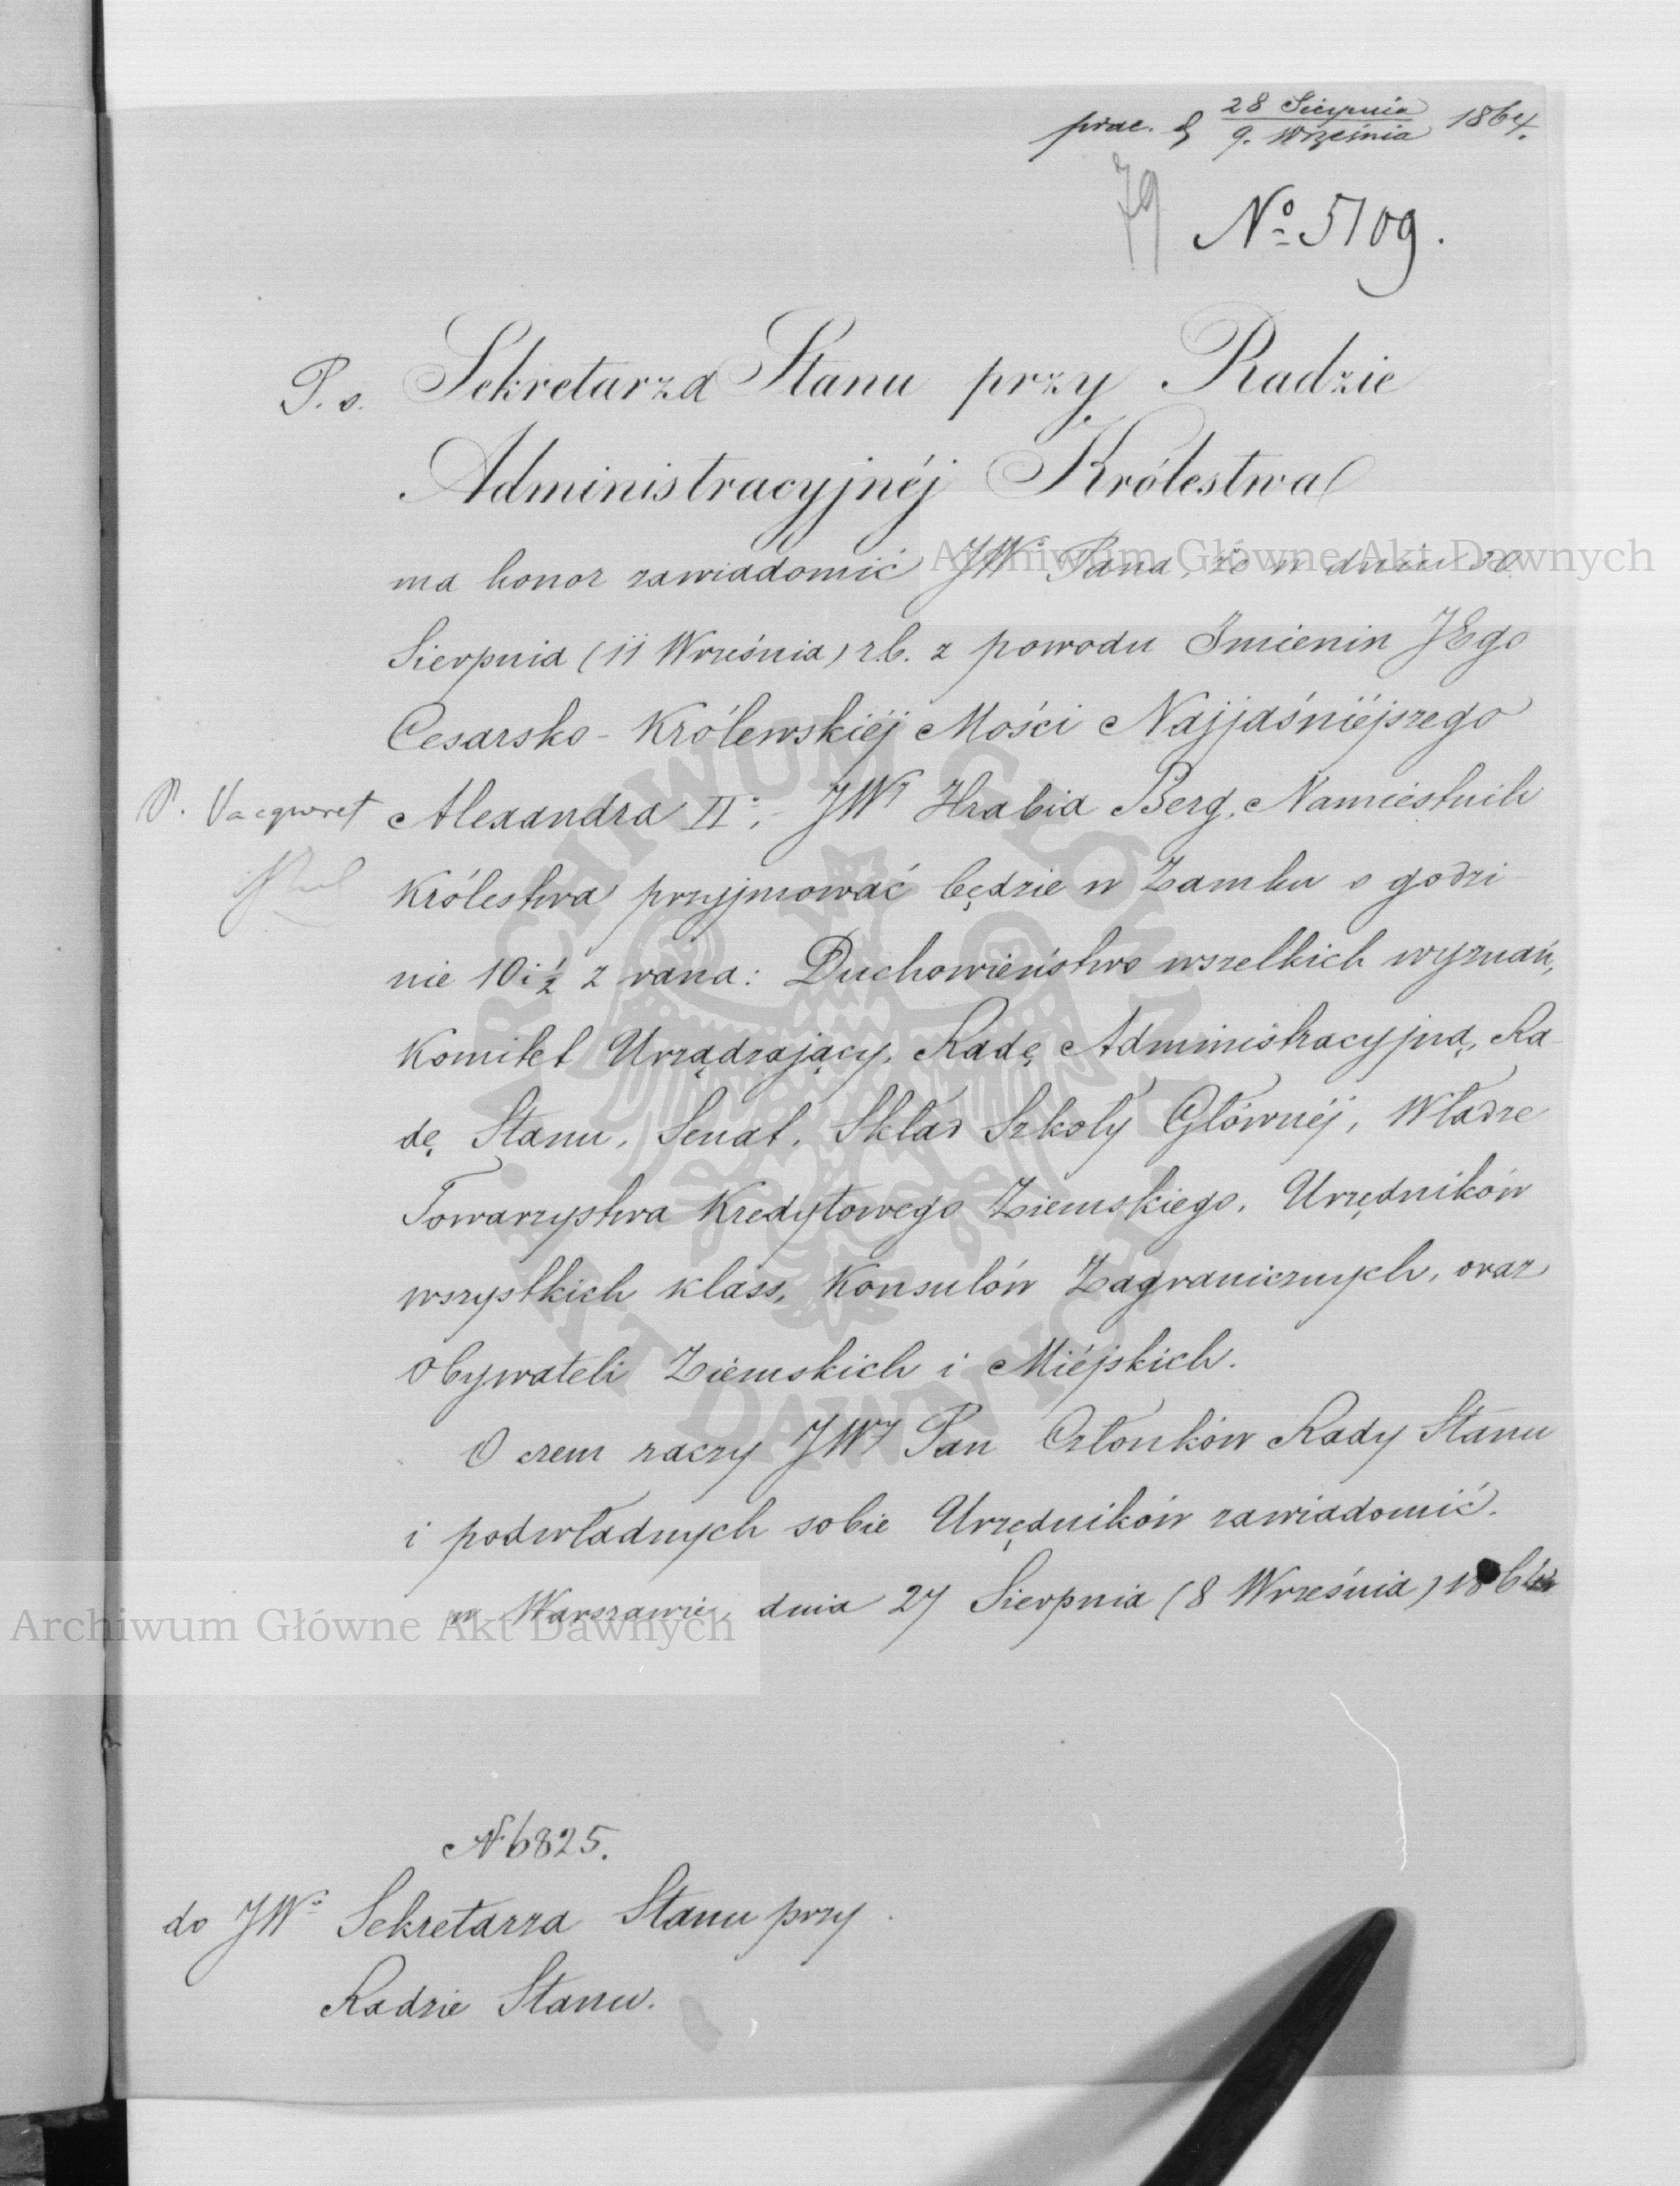 prae. d 28 Sierpnia
9. Września 1864.
79 No 5109.
P. o. Sekretarza Stanu przy Radzie
Administracyjnéj Królestwa
ma honor zawiadomić JWo Pana, że w dniu 30
Sierpnia (11 Września) r.b. z powodu Imienin JEgo
Cesarsko-Królewskiéj Mości Najjaśniéjszego
Alexandra II:, JWy Hrabia Berg, Namiestnik
Królestwa przyjmować będzie w Zamku o godzi-
nie 10 i ½ z rana: Duchowieństwo wszelkich wyznań,
Komitet Urządzający, Radę Administracyjną, Ra-
dę Stanu, Senat, Skład Szkoły Głównéj, Władze
Towarzystwa Kredytowego Ziemskiego, Urzędników
wszystkich klass, Konsulów Zagranicznych, oraz
Obywateli Ziemskich i Miéjskich.
O czem raczy JWy Pan Członków Rady Stanu
i podwładnych sobie Urzędników zawiadomić.
w Warszawie, dnia 27 Sierpnia (8 Września) 1864
P.
No 6825.
do JWo Sekretarza Stanu przy
Radzie Stanu.
Archiwum Główne Akt Dawnych
Archiwum Główne Akt Dawnych
ARCHIWUM GŁÓWNE AKT DAWNYCH